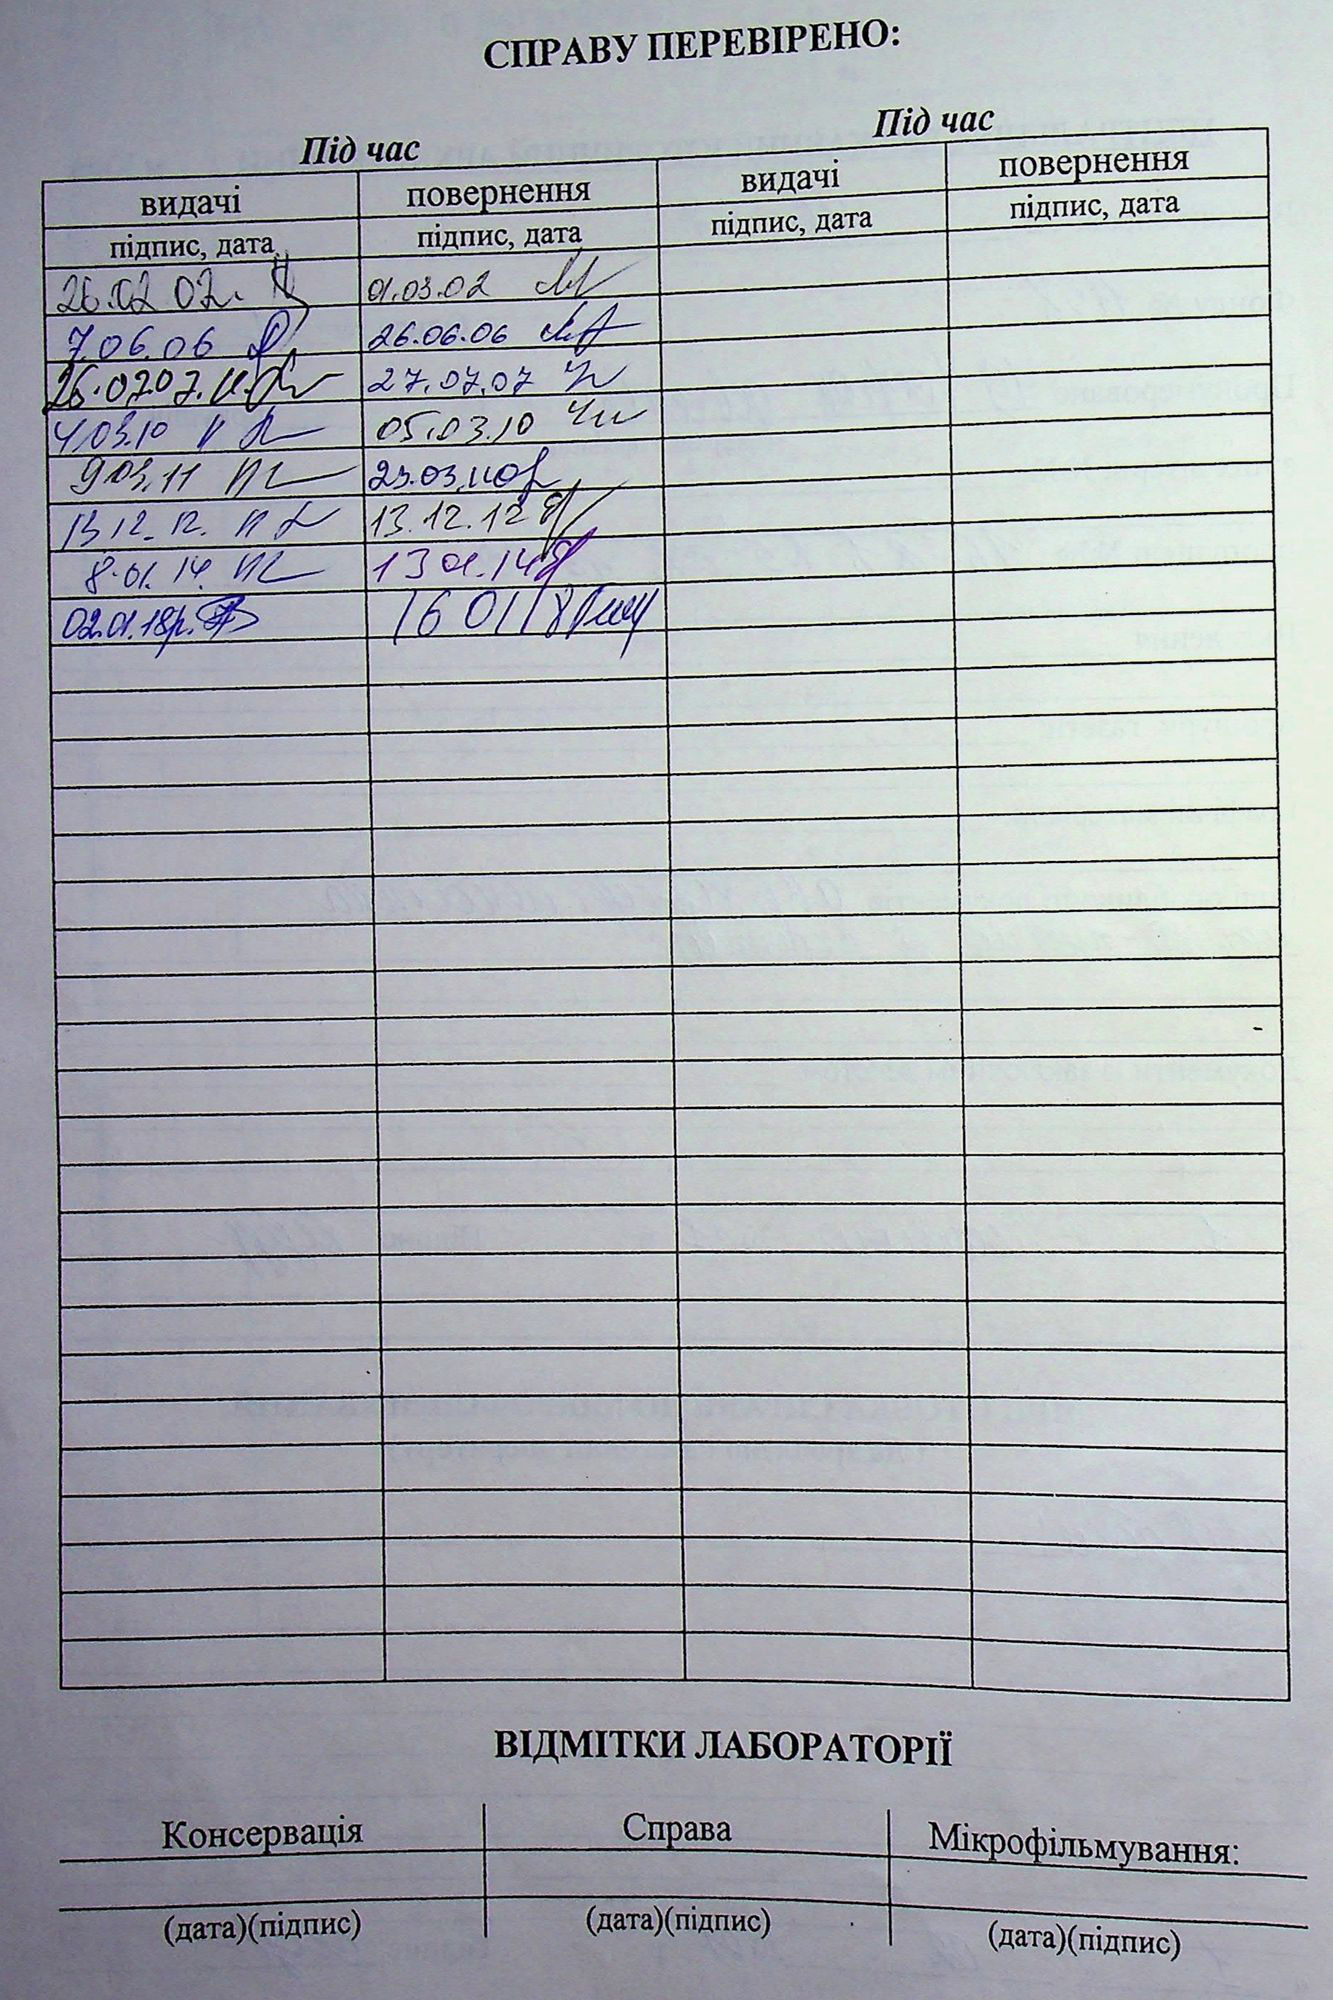 СПРАВУ ПЕРЕВІРЕНО:
Під час Під час
видачі повернення видачі повернення
підпис, дата підпис, дата підпис, дата підпис, дата
26.02 02. 01.03.02
7.06.06 26.06.06
26.07.07. 27.07.07
4.03.10 05.03.10
9.03.11 23.03.11
13 12. 12. 13.12.12
8.01.14. 13 01.14
02.01.18р. 16 01 18
ВІДМІТКИ ЛАБОРАТОРІЇ
Консервація Справа Мікрофільмування:
(дата)(підпис) (дата)(підпис) (дата)(підпис)